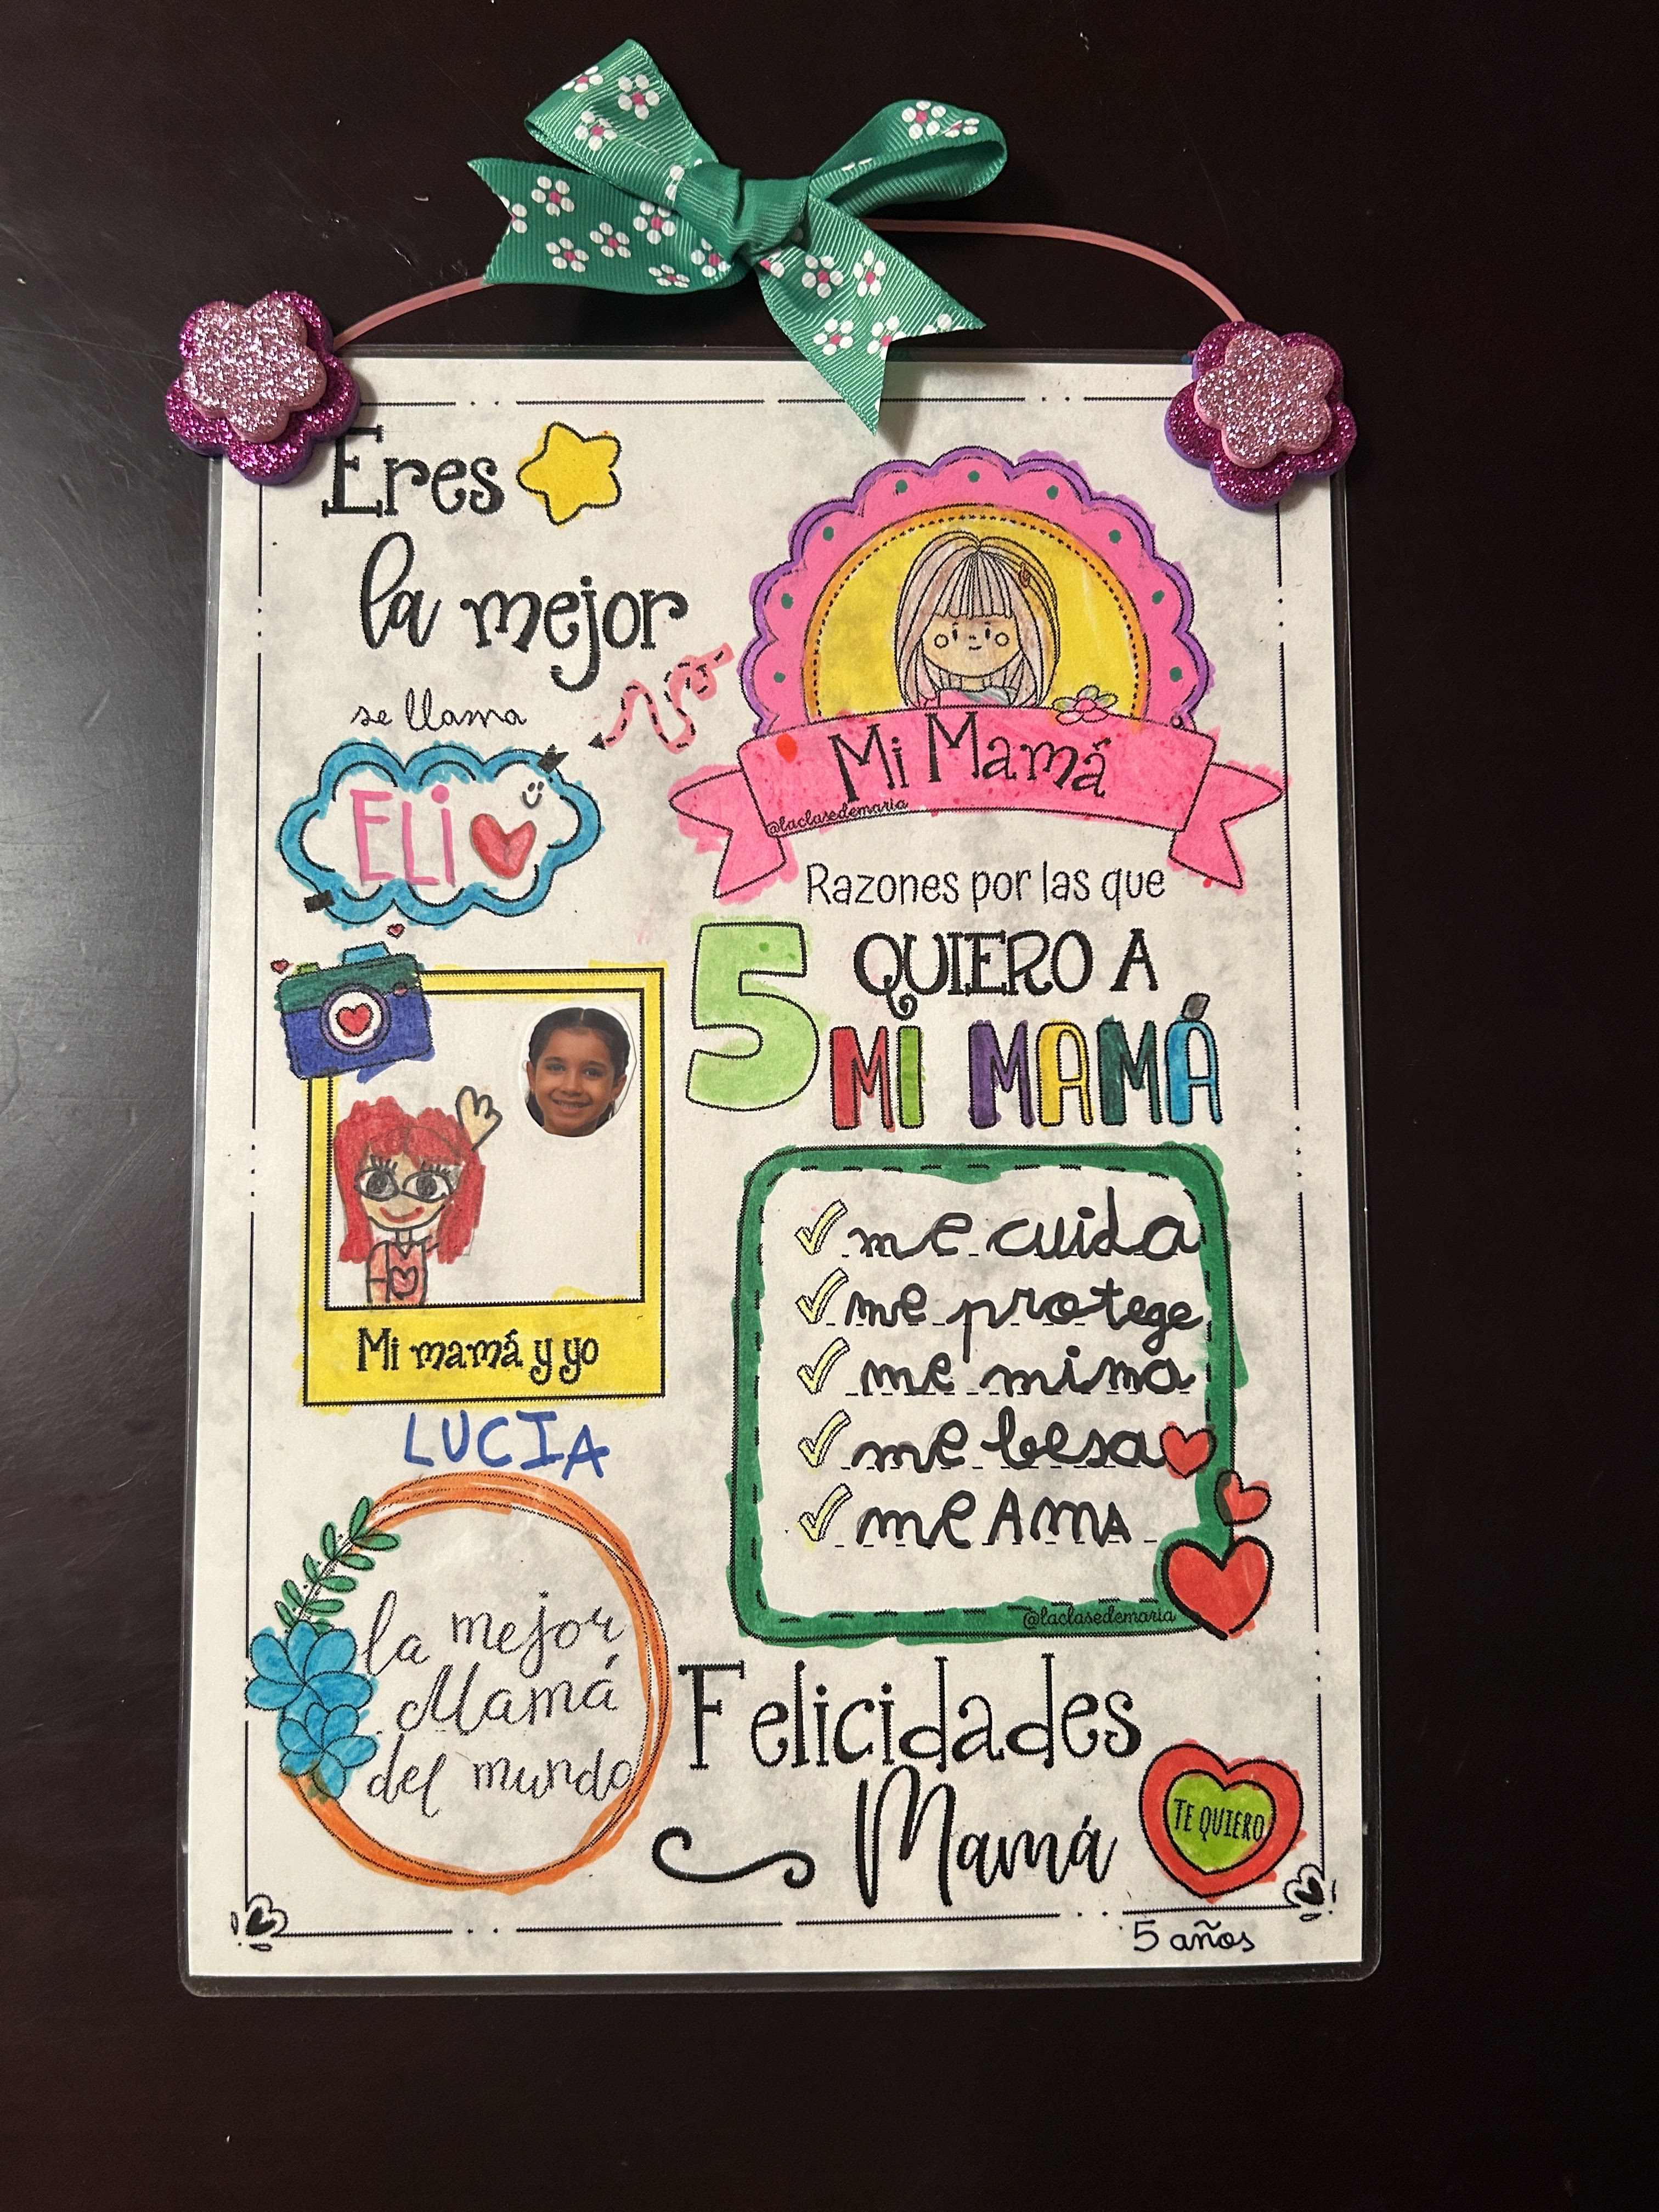 Eres
la mejor
se llama
ELI
Mi Mamá
@laclasedemaria
Razones por las que
5 QUIERO A
MI MAMÁ
Mi mamá y yo
LUCIA
me cuida
me protege
me mima
me besa
me AmA
@laclasedemaria
la mejor
Mamá
del mundo
Felicidades
Mamá
TE QUIERO
5 años